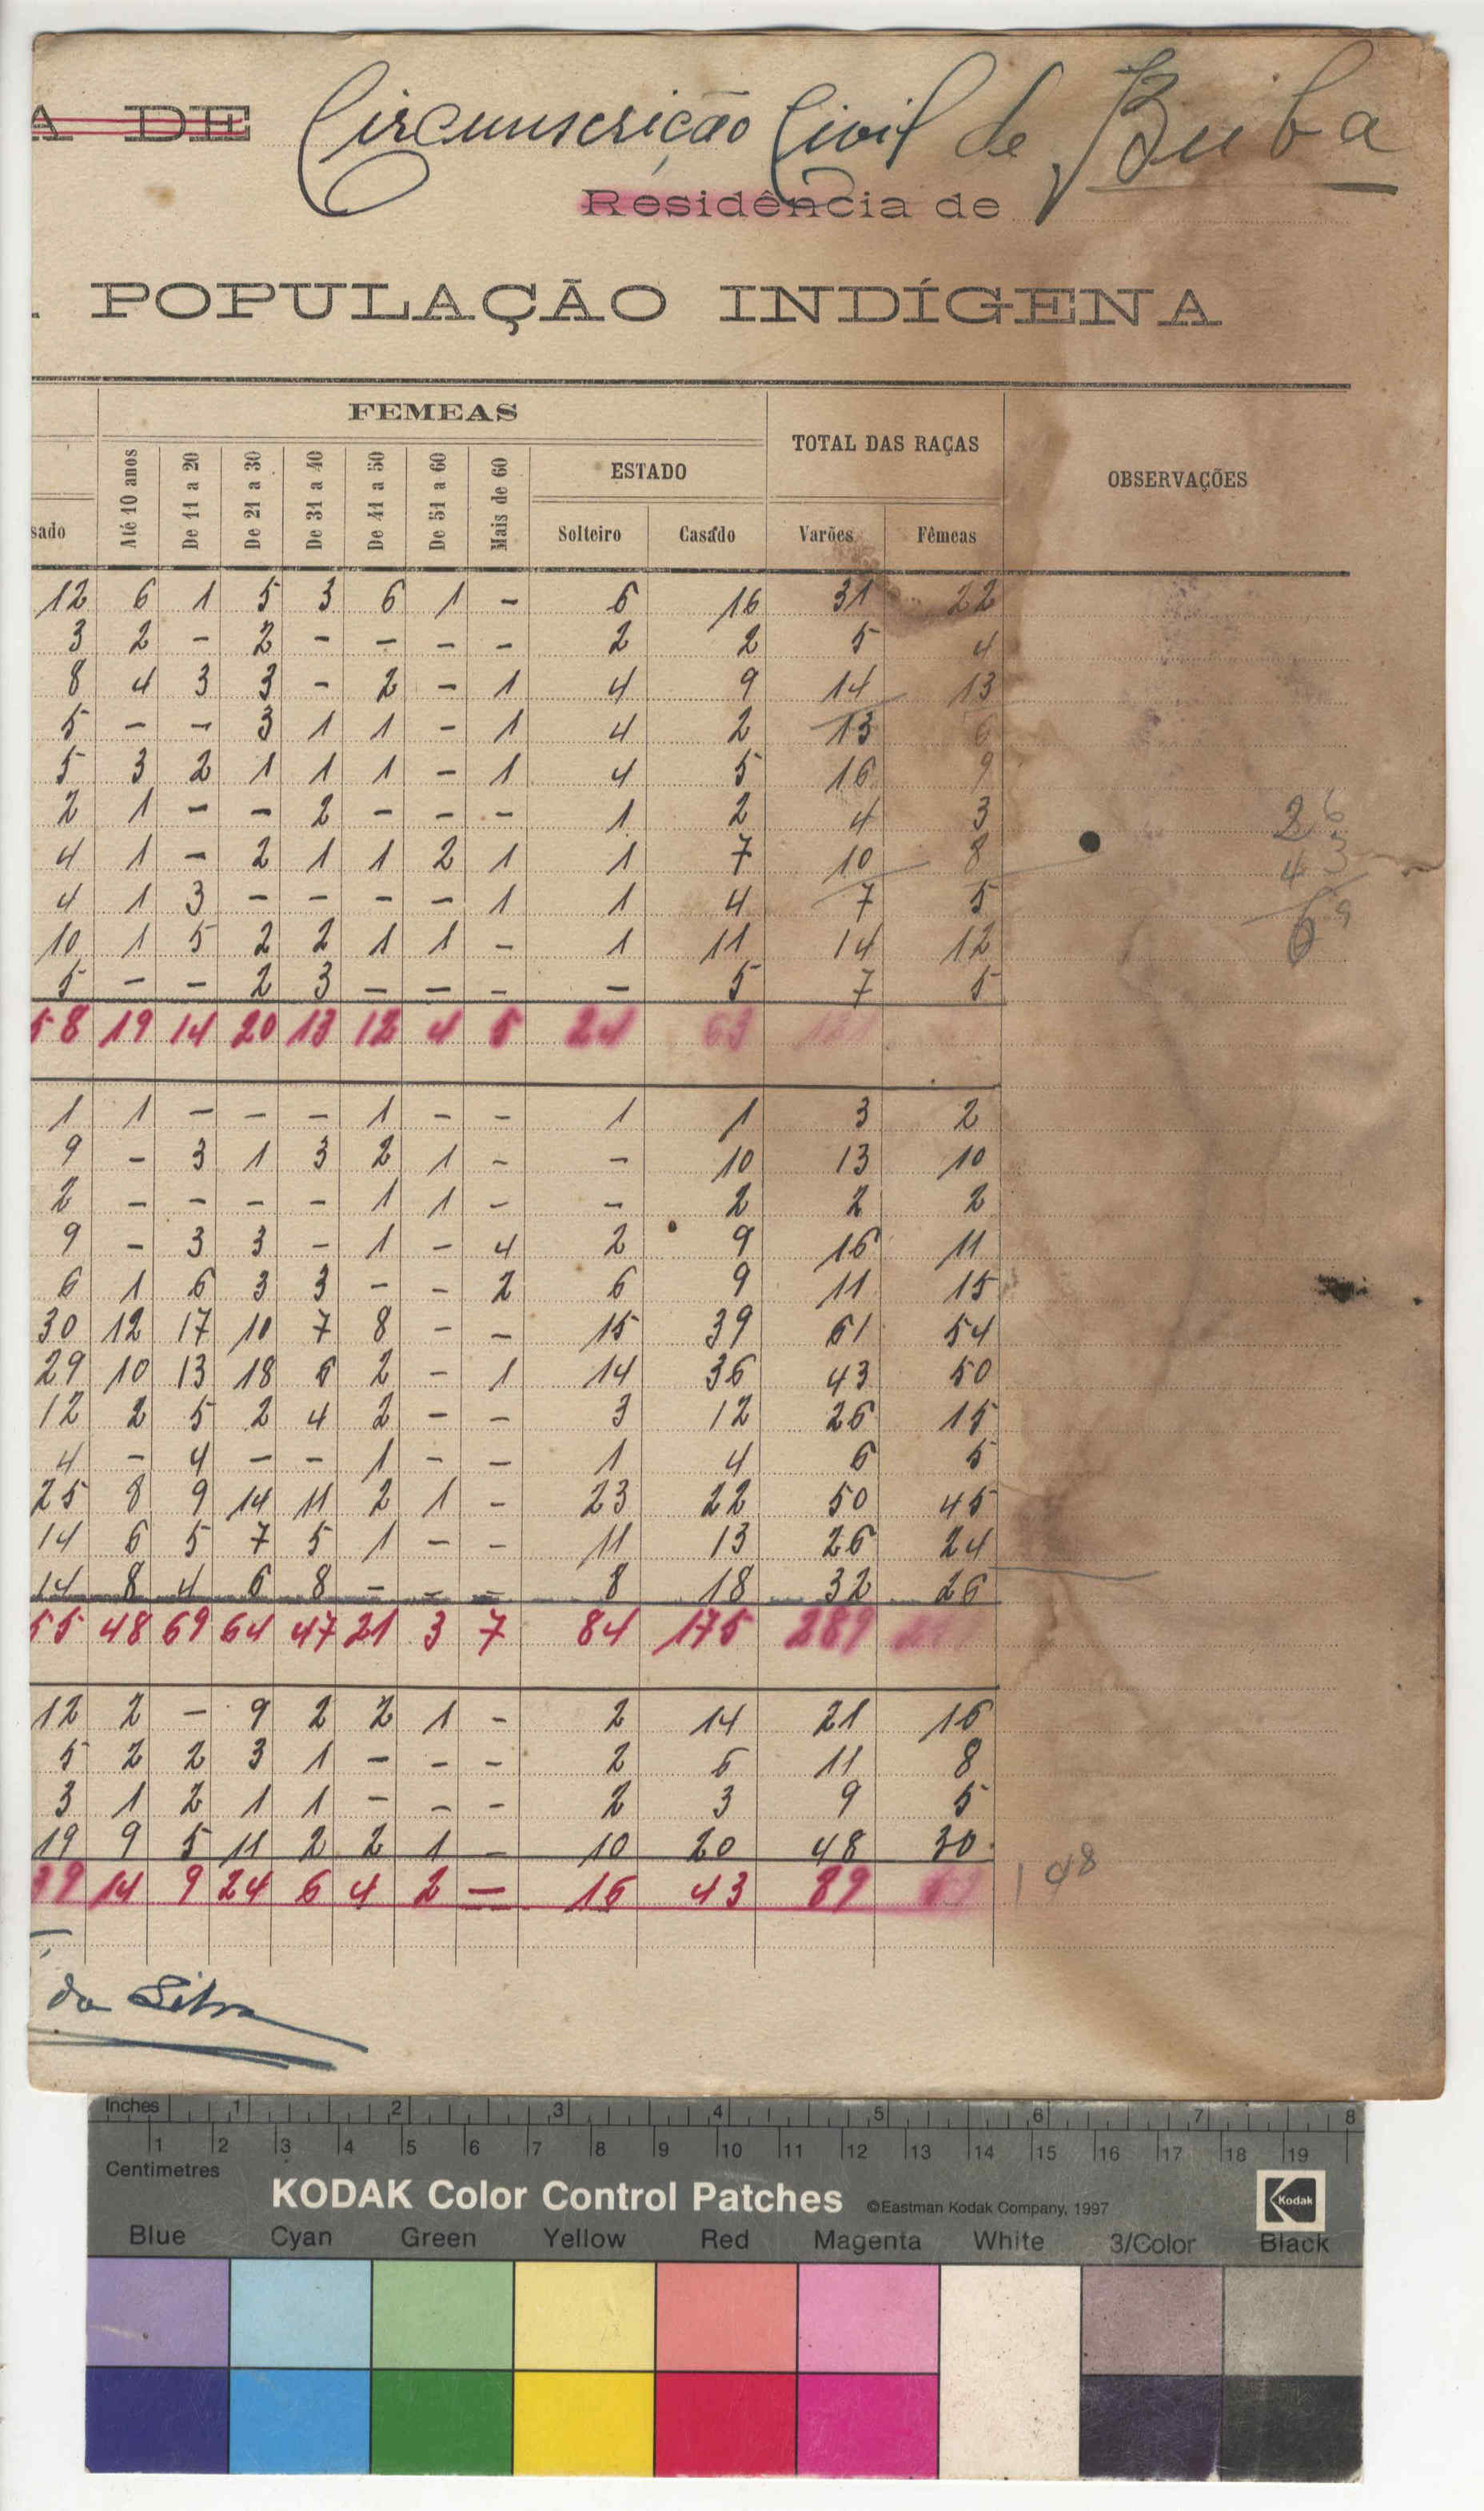 A DE Circunscrição Civil de Buba
Residência de
POPULAÇÃO INDÍGENA
FEMEAS
TOTAL DAS RAÇAS
OBSERVAÇÕES
sado
Até 10 anos
De 11 a 20
De 21 a 30
De 31 a 40
De 41 a 50
De 51 a 60
Mais de 60
ESTADO
Solteiro
Casado
Varões
Fêmeas
12 6 1 5 3 6 1 - 6 16 31 22
3 2 - 2 - - - - 2 2 5 4
8 4 3 3 - 2 - 1 4 9 14 13
5 - - 3 1 1 - 1 4 2 13 6
5 3 2 1 1 1 - 1 4 5 16 9
2 1 - - 2 - - - 1 2 4 3 26
4 1 - 2 1 1 2 1 1 7 10 8 43
4 1 3 - - - - 1 1 4 7 5 69
10 1 5 2 2 1 1 - 1 11 14 12
5 - - 2 3 - - - - 5 7 5
58 19 14 20 13 12 4 5 24 63 121
1 1 - - - 1 - - 1 1 3 2
9 - 3 1 3 2 1 - - 10 13 10
2 - - - - 1 1 - - 2 2 2
9 - 3 3 - 1 - 4 2 9 16 11
6 1 6 3 3 - - 2 6 9 11 15
30 12 17 10 7 8 - - 15 39 61 54
29 10 13 18 6 2 - 1 14 36 43 50
12 2 5 2 4 2 - - 3 12 26 15
4 - 4 - - 1 - - 1 4 6 5
25 8 9 14 11 2 1 - 23 22 50 45
14 6 5 7 5 1 - - 11 13 26 24
14 8 4 6 8 - - - 8 18 32 26
55 48 69 64 47 21 3 7 84 175 289
12 2 - 9 2 2 1 - 2 14 21 16
5 2 2 3 1 - - - 2 6 11 8
3 1 2 1 1 - - - 2 3 9 5
19 9 5 11 2 2 1 - 10 20 48 30
39 14 9 24 6 4 2 - 16 43 89 148
da Silva
Inches 1 2 3 4 5 6 7 8
1 2 3 4 5 6 7 8 9 10 11 12 13 14 15 16 17 18 19
Centimetres
KODAK Color Control Patches ©Eastman Kodak Company, 1997 Kodak
Blue Cyan Green Yellow Red Magenta White 3/Color Black